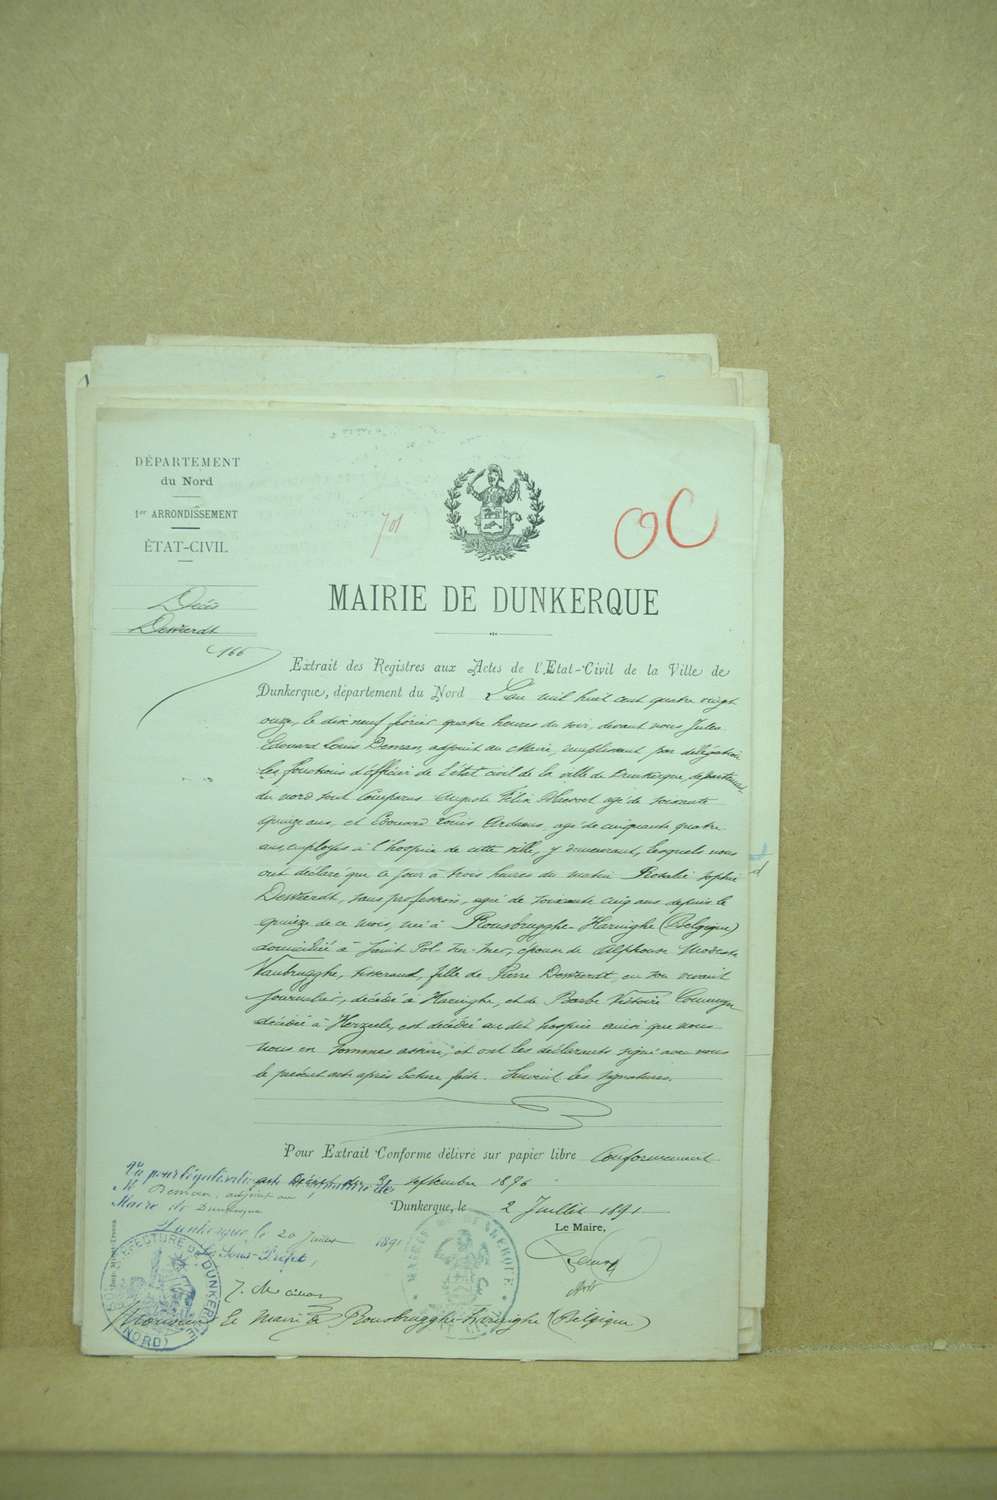 DÉPARTEMENT
du Nord
1er ARRONDISSEMENT
ÉTAT-CIVIL
701
OC
Décès
166
MAIRIE DE DUNKERQUE
Extrait des Registres aux Actes de l'Etat-Civil de la Ville de
Dunkerque, département du Nord L'an mil huit cent quatre vingt
onze, le dix neuf février quatre heures du soir, devant nous Jules
Edouard Louis Deman, adjoint au Maire, remplissant par délégation
les fonctions d'officier de l'état civil de la ville de Dunkerque, département
du nord sont comparus Auguste Félix âgé de soixante
quinze ans, et Edouard Louis âgé de cinquante quatre
ans, employés à l'hospice de cette ville, y demeurant, lesquels nous
ont déclaré que ce jour à trois heures du matin Rosalie Sophie
sans profession, agée de soixante cinq ans depuis le
quinze de ce mois, née à Rousbrugghe-Haringhe (Belgique)
domiciliée à Saint Pol-sur-mer, épouse de Alphonse Modeste
Vanbrugghe, tisserand, fille de Pierre en son vivant
journalier, décédé à Haringhe, et de Barbe Victoire
décédée à Herzeele, est décédée au dit hospice ainsi que nous
nous en sommes assuré, et ont les déclarants signé avec nous
le présent acte après lecture faite. Suivent les signatures.
Pour Extrait Conforme délivré sur papier libre Conformément
septembre 1876
Vu pour légalisation
M. Deman, adjoint au
Maire de Dunkerque
Dunkerque, le 2 Juillet 1891
Le Maire,
Dunkerque, le 20 1891
Le Sous-Préfet,
MAIRIE DE DUNKERQUE
SOUS-PRÉFECTURE DE DUNKERQUE
(NORD)
Monsieur le Maire de Rousbrugghe-Haringhe (Belgique)